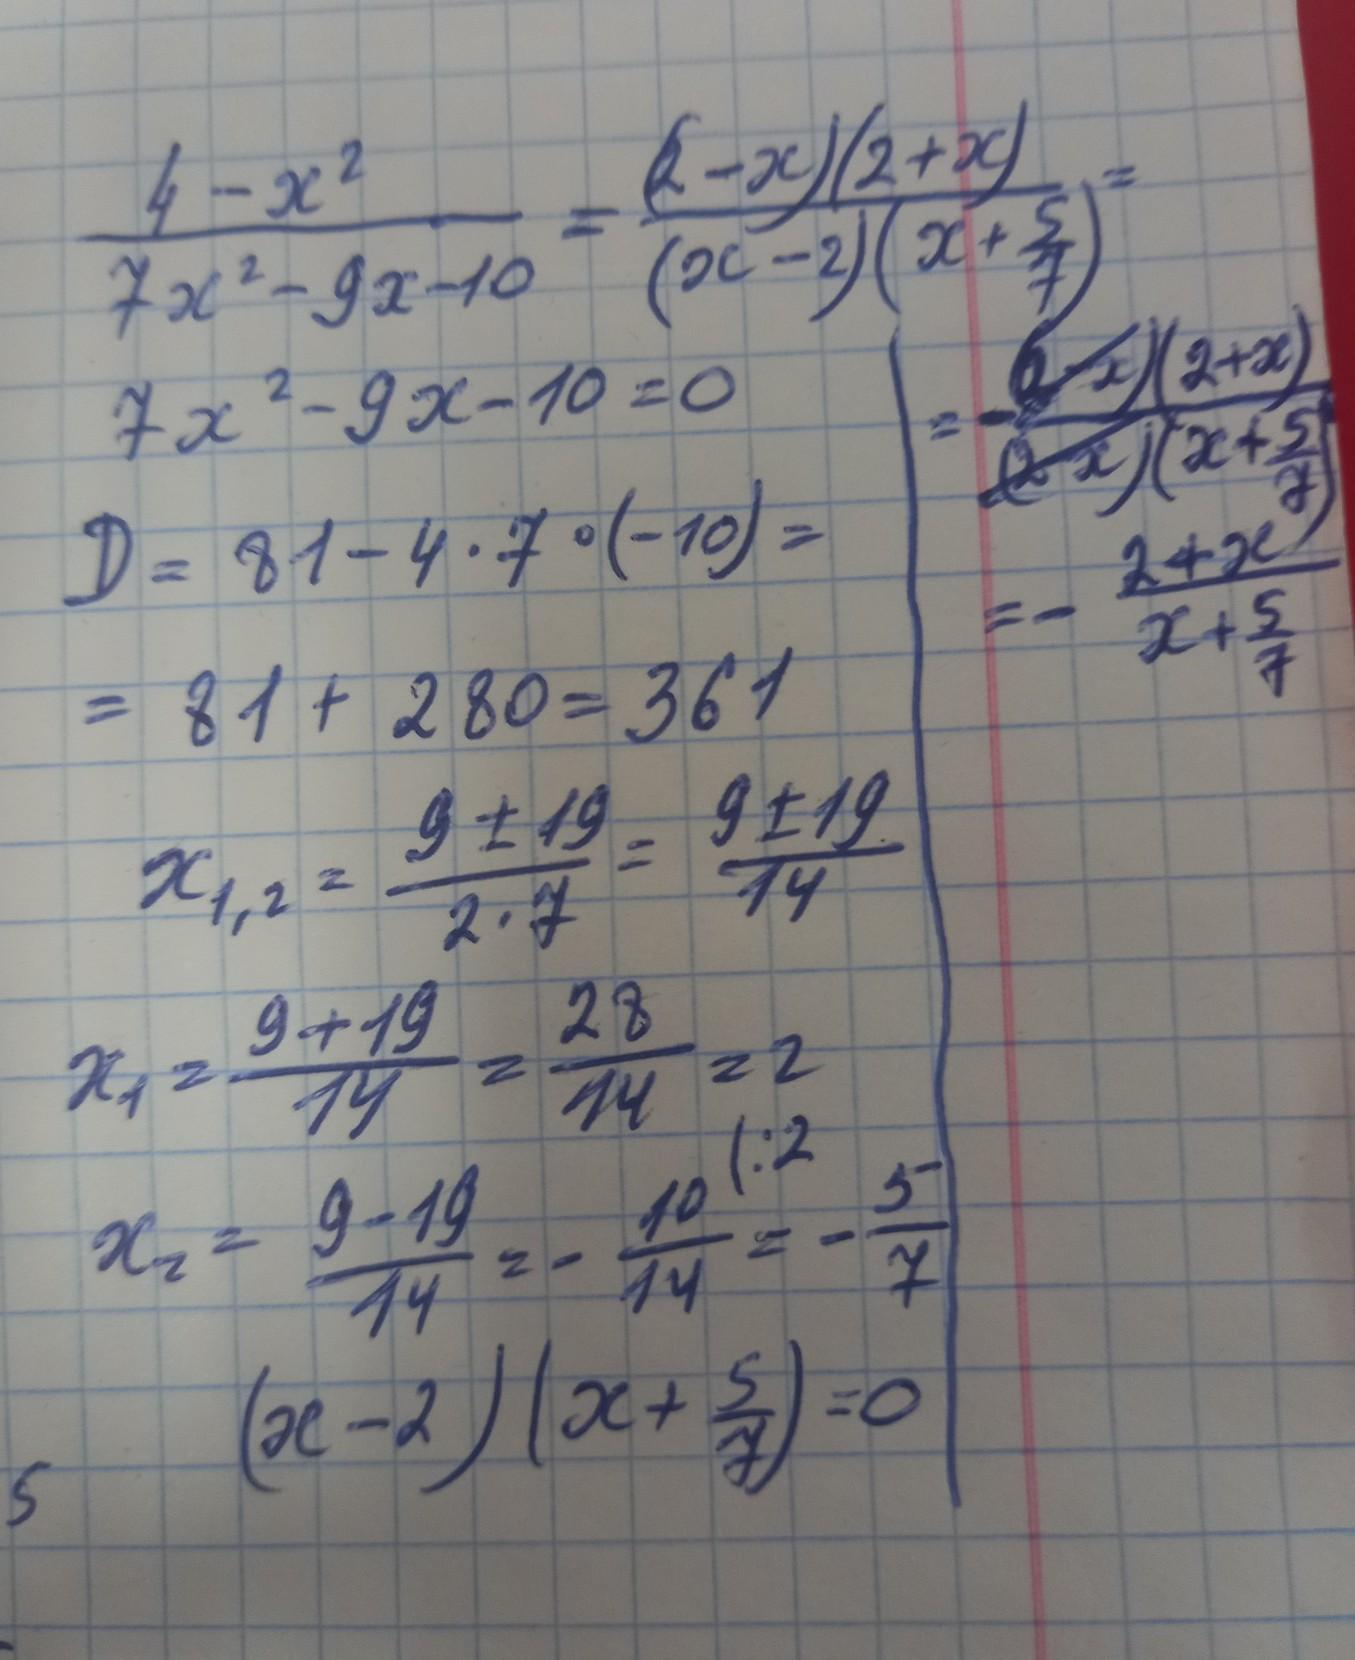 4 - x² / 7x² - 9x - 10 = (2 - x)(2 + x) / (x - 2)(x + 5/7) =
7x² - 9x - 10 = 0
D = 81 - 4 · 7 · (-10) =
= 81 + 280 = 361
x₁,₂ = 9 ± 19 / 2 · 7 = 9 ± 19 / 14
x₁ = 9 + 19 / 14 = 28 / 14 = 2
x₂ = 9 - 19 / 14 = - 10 / 14 (:2 = - 5 / 7
(x - 2)(x + 5/7) = 0
5
= - (2 - x)(2 + x) / (2 - x)(x + 5/7)
= - 2 + x / x + 5/7